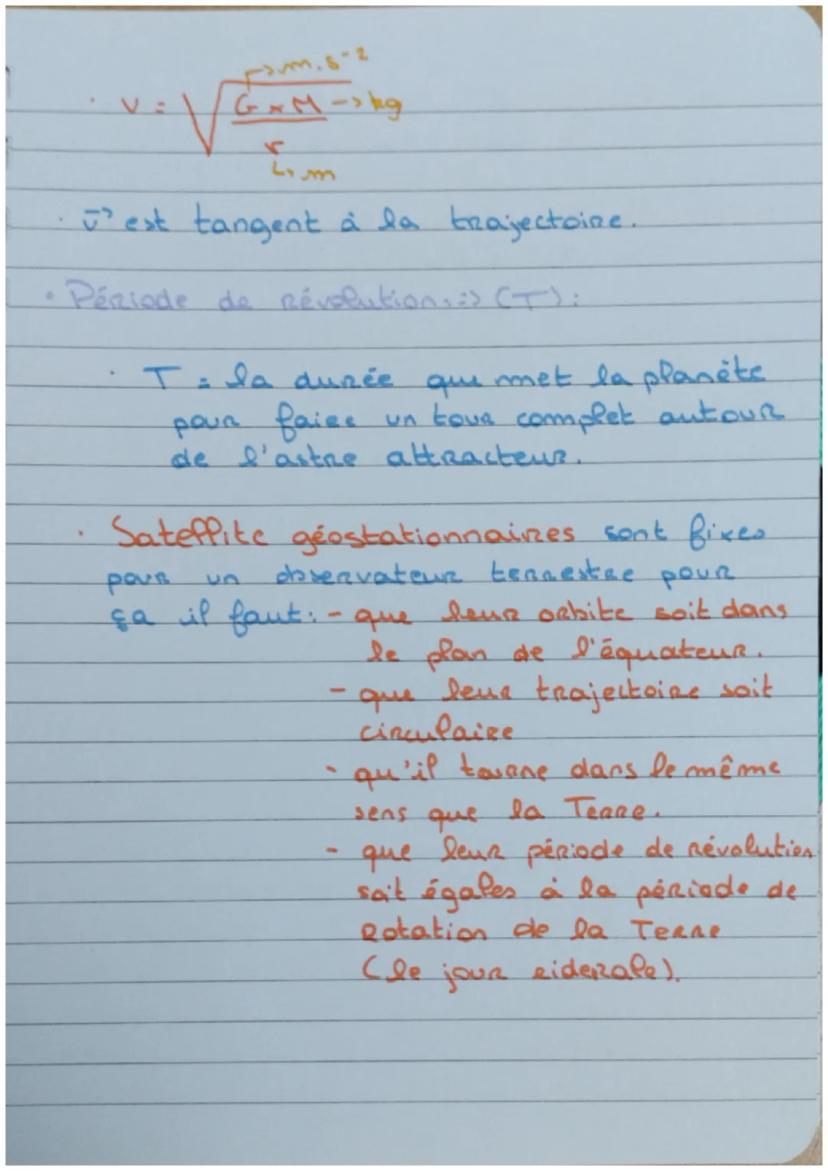 ↱→ m.s⁻²
· v = √(G × M / r) → kg
↳ m
· v⃗ est tangent à la trajectoire.
• Période de révolution :=> (T) :
· T = la durée que met la planète
pour faire un tour complet autour
de l'astre attracteur.
· Satellite géostationnaires sont fixes
pour un observateur terrestre pour
ça il faut : - que leur orbite soit dans
le plan de l'équateur.
- que leur trajectoire soit
circulaire
- qu'il tourne dans le même
sens que la Terre.
- que leur période de révolution
soit égales à la période de
Rotation de la Terre
(le jour siderale).